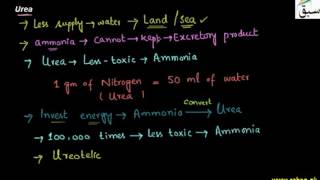 Urea
→ Less supply → water → Land / Sea ✓
→ ammonia → Cannot → kept → Excretory product
→ Urea → Less-toxic → Ammonia
1 gm of Nitrogen = 50 ml of water
(Urea)
convert
→ Invest energy → Ammonia → Urea
→ 100,000 times → less toxic → Ammonia
→ Ureotelic
سبق